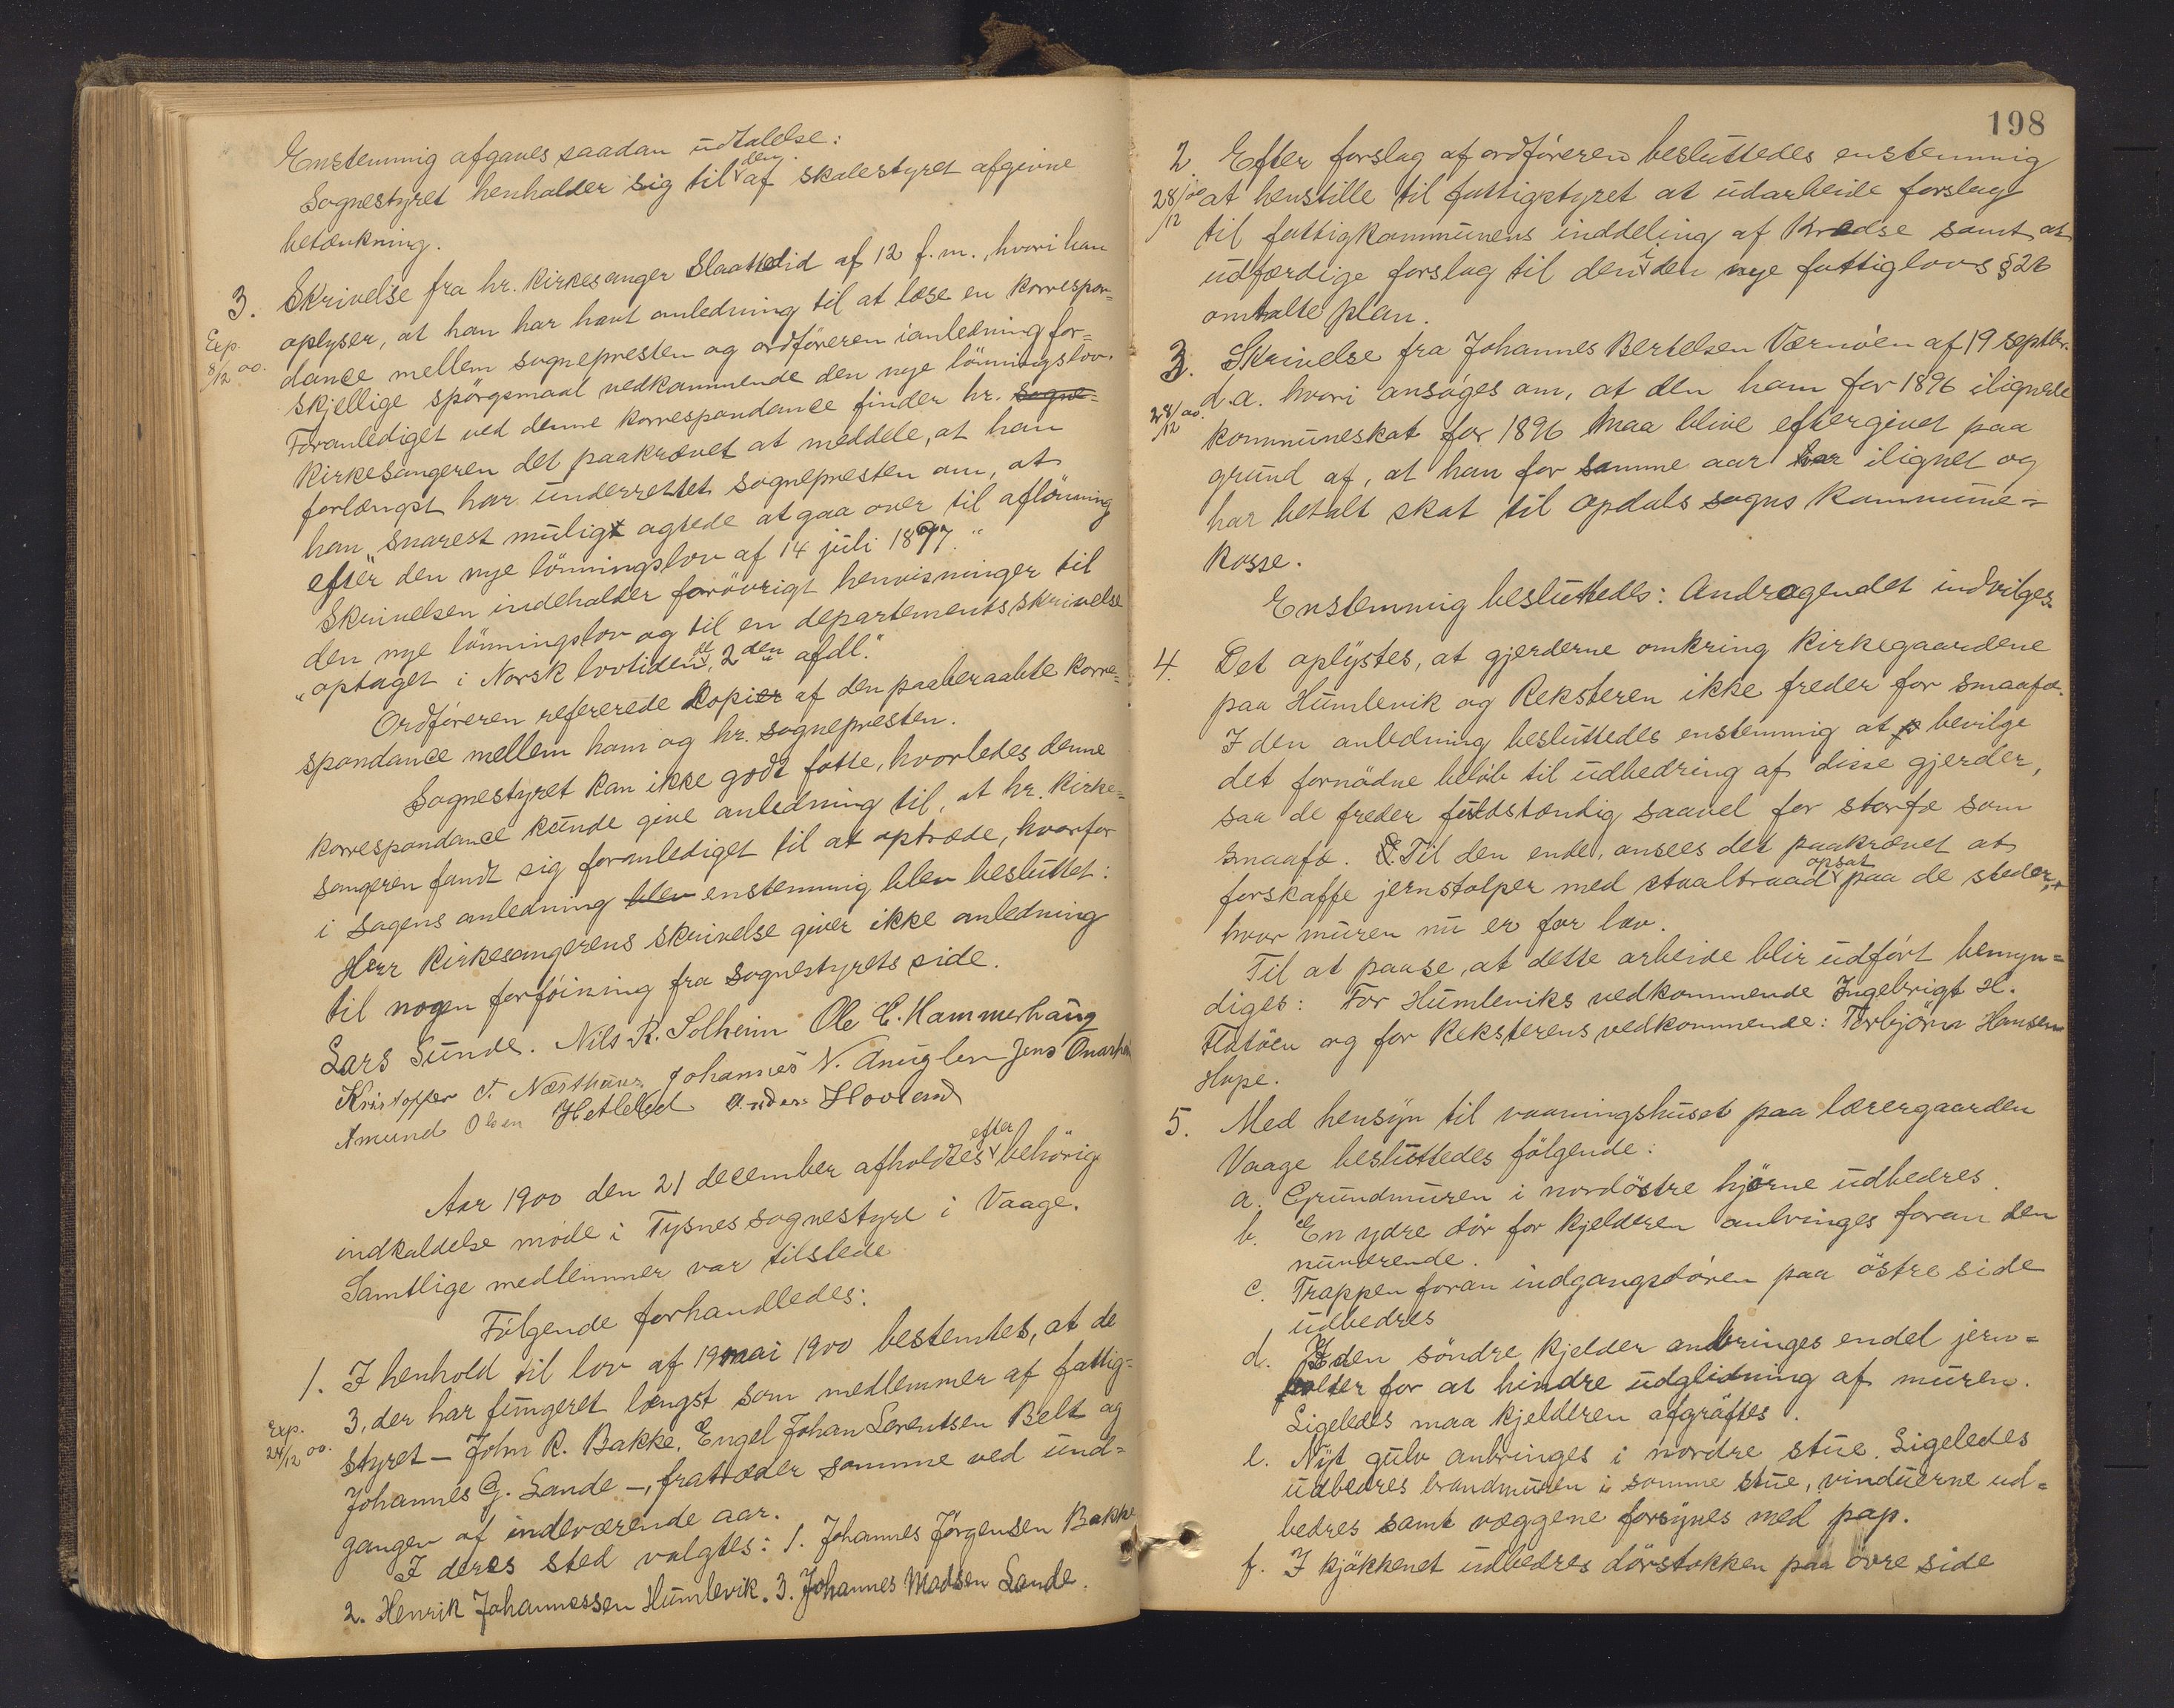 Enstemmig afgaves saadan udtalelse:
Sognestyret henholder sig til den af skolestyret afgivne
betænkning.
3. Skrivelse fra hr. kirkesanger Slaattelid af 12 f.m., hvori han
Exp. 8/12 00.
oplyser, at han har havt anledning til at læse en korrespon=
dance mellem sognepresten og ordföreren ianledning for=
skjellige spörgsmaal vedkommende den nye lönningslov.
Foranlediget ved denne korrespondance finder hr. sogne=
kirkesangeren det paakrævet at meddele, at han
forlængst har underrettet sognepresten om, at
han „snarest muligt agtede at gaa over til aflönning
efter den nye lönningslov af 14 juli 1897."
Skrivelsen indeholder forövrigt henvisninger til
den nye lönningslov og til en departementsskrivelse
„optaget i Norsk lovtidende, 2den afdl."
Ordföreren refererede kopier af den paaberaabte korre=
spondance mellem ham og hr. sognepresten.
Sognestyret kan ikke godt fatte, hvorledes denne
korrespondance kunde give anledning til, at hr. kirke=
sangeren fandt sig foranlediget til at optræde, hvorfor
i sagens anledning blev enstemmig blev besluttet:
Herr kirkesangerens skrivelse giver ikke anledning
til nogen forföining fra sognestyrets side.
Lars Sunde. Nils R. Solheim Ole C. Hammerhaug
Kristoffer T. Næsthuus Johannes N. Anuglen Jens Onarheim
Amund Olsen Hetleflod Anders Hovland
Aar 1900 den 21 december afholdtes efter behörig
indkaldelse möde i Tysnes sognestyre i Vaage.
Samtlige medlemmer var tilstede
Fölgende forhandledes:
1. I henhold til lov af 19 mai 1900 bestemtes, at de
3, der har fungeret længst som medlemmer af fattig=
Exp. 24/12 00.
styret – John R. Bakke, Engel Johan Lorentsen Belt og
Johannes G. Lande –, fratræder samme ved und=
gangen af indeværende aar.
I deres sted valgtes: 1. Johannes Jörgensen Bakke
2. Henrik Johannessen Humlevik. 3. Johannes Madsen Lande.
198
2 Efter forslag af ordföreren besluttedes enstemmig
28/12 00 at henstille til fattigstyret at udarbeide forslag
til fattigkommunens inddeling af Kredse samt at
udfærdige forslag til den i den nye fattiglovs § 26
omtalte plan.
3. Skrivelse fra Johannes Bertelsen Værnöen af 19 septbr.
d.a. hvori ansöges om, at den ham for 1896 ilignede
28/12 00.
kommuneskat for 1896 maa blive eftergivet paa
grund af, at han for samme aar har ilignet og
har betalt skat til Opdals sogns kommune=
kasse.
Enstemmig besluttedes: Andragendet indvilges.
4. Det oplystes, at gjerderne omkring kirkegaardene
paa Humlevik og Reksteren ikke freder for smaafæ.
I den anledning besluttedes enstemmig at bevilge
det fornödne belöb til udbedring af disse gjerder,
saa de freder fuldstændig saavel for storfæ som
smaafæ. Til den ende, ansees det paakrævet at
forskaffe jernstolper med staaltraad opsat paa de steder,
hvor muren nu er for lav.
Til at paase, at dette arbeide blir udfört bemyn=
diges: For Humleviks vedkommende Ingebrigt H.
Flatöen og for Reksterens vedkommende: Torbjörn Hansen
Hope.
5. Med hensyn til vaaningshuset paa lærergaarden
Vaage besluttedes fölgende:
a. Grundmuren i nordöstre hjörne udbedres.
b. En ydre dör for kjelderen anbringes foran den
nuværende.
c. Trappen foran indgangsdören paa östre side
udbedres
d. I den söndre kjelder anbringes endel jern=
bolter for at hindre udglidning af muren.
Ligeledes maa kjelderen afgröftes.
e. Nyt gulv anbringes i nordre stue. Ligeledes
udbedres brandmuren i samme stue, vinduerne ud=
bedres samt væggene forsynes med pap.
f. I kjökkenet udbedres dörstokken paa övre side